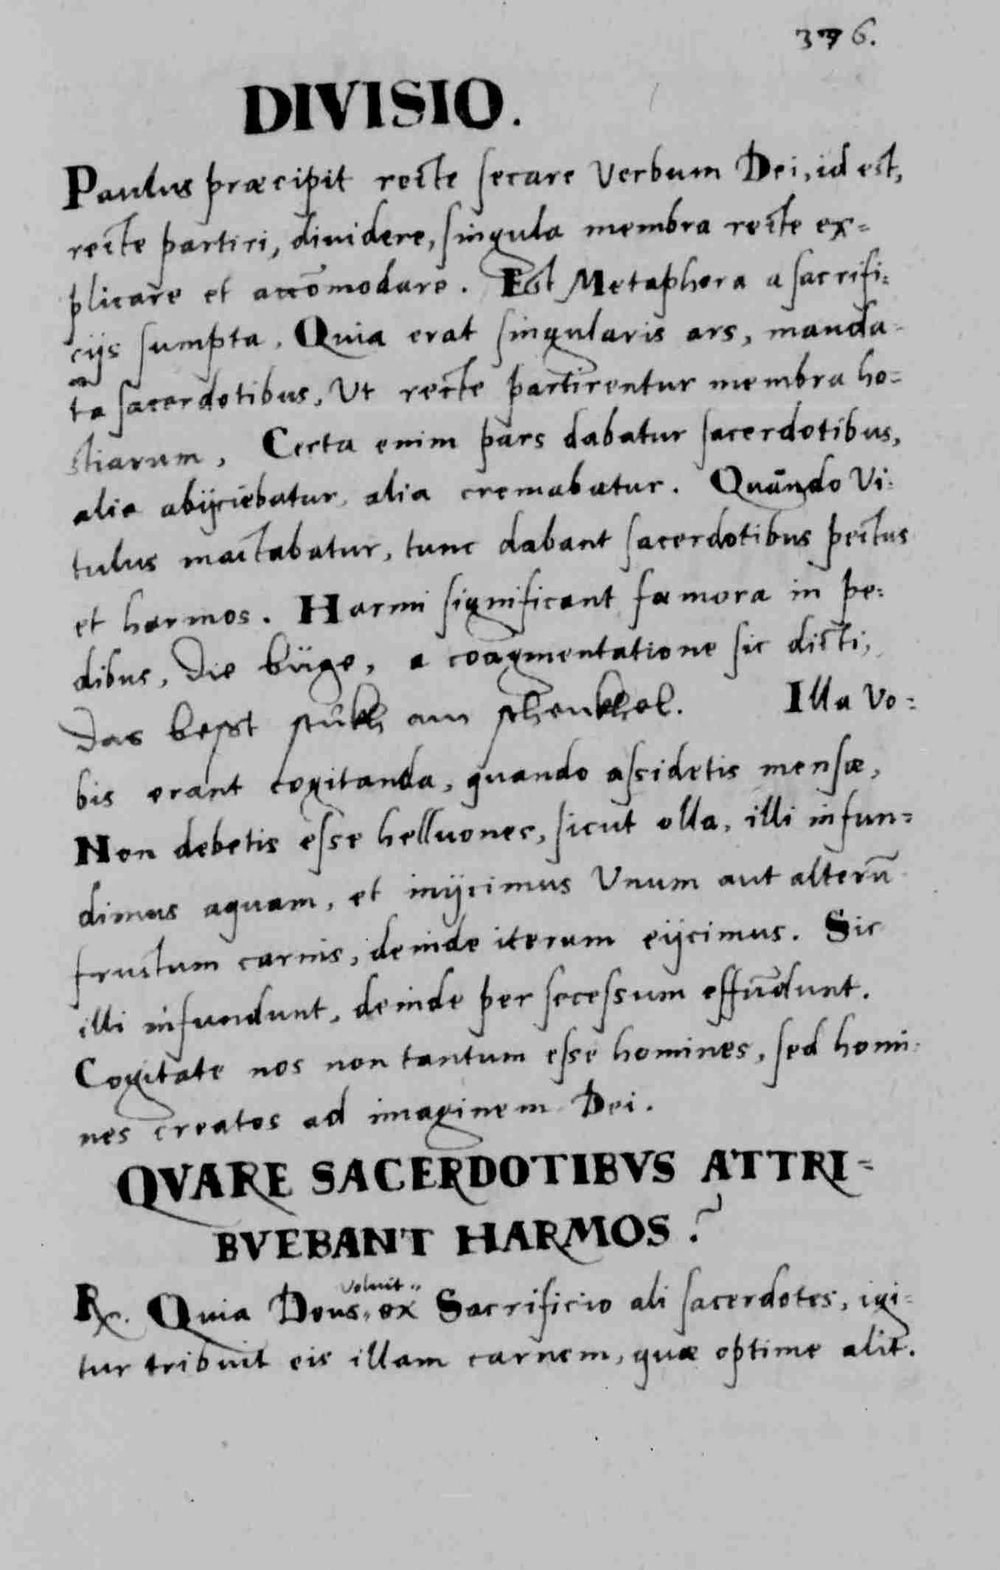 376.
DIVISIO.
Paulus præcipit recte secare Verbum Dei, id est,
recte partiri, diuidere, singula membra recte ex=
plicare et accōmodare. Est Metaphora a sacrifi=
cijs sumpta. Quia erat singularis ars, manda=
ta sacerdotibus, Ut recte partirentur membra ho=
stiarum, Certa enim pars dabatur sacerdotibus,
alia abijciebatur, alia cremabatur. Quando Vi=
tulus mactabatur, tunc dabant sacerdotibus pectus
et harmos. Harmi significant fæmora in pe=
dibus, die büge, a coagmentatione sic dicti,
das besst stükh am schenkhel. Illa Vo=
bis erant cogitanda, quando assidetis mensæ,
Non debetis esse helluones, sicut olla, illi infun=
dimus aquam, et inijcimus Unum aut alterū
frustum carnis, deinde iterum eijcimus. Sic
illi infundunt, deinde per secessum effundunt.
Cogitate nos non tantum esse homines, sed homi=
nes creatos ad imaginem Dei.
QVARE SACERDOTIBVS ATTRI=
BVEBANT HARMOS?
R. Quia Deus voluit ex Sacrificio ali sacerdotes, igi=
tur tribuit eis illam carnem, quæ optime alit.